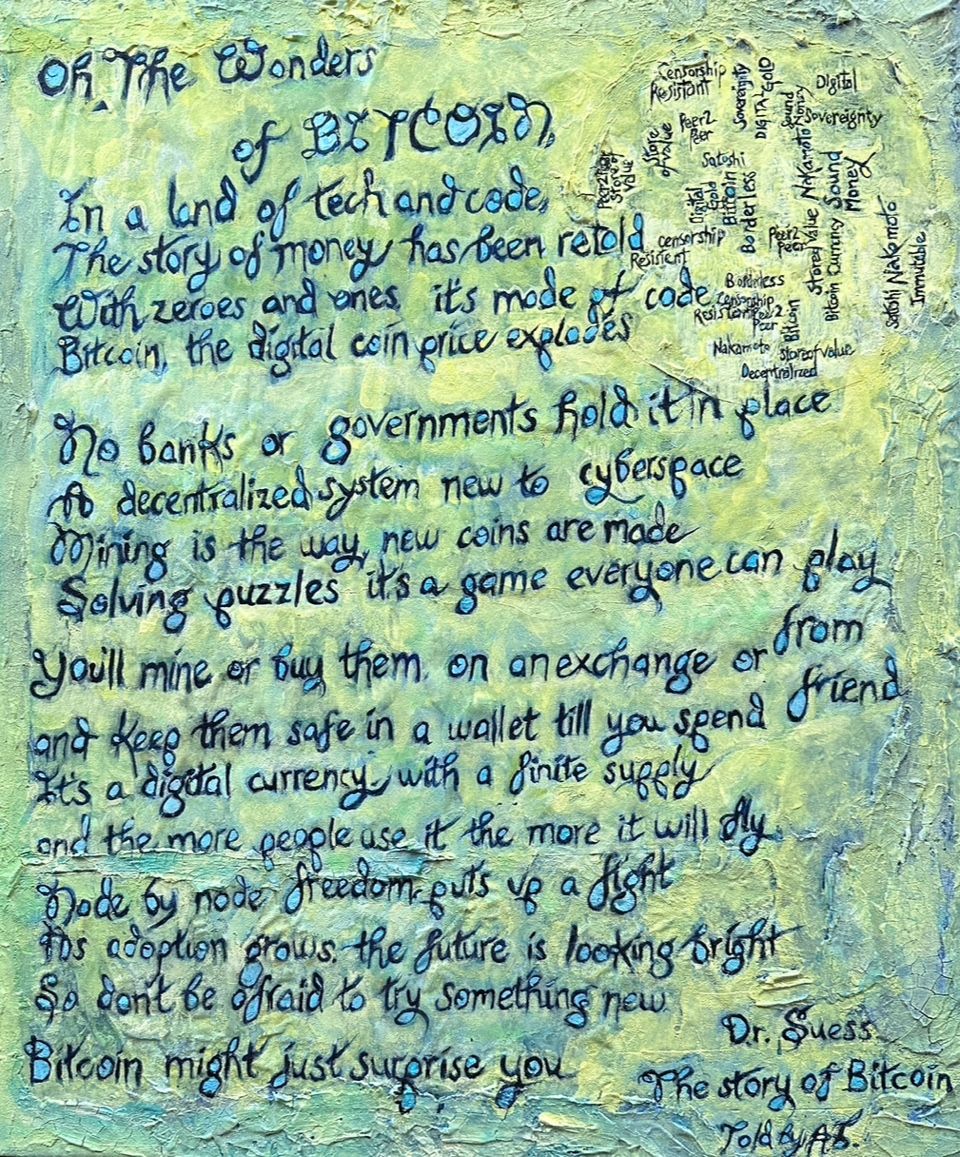 Oh The Wonders
of BITCOIN
In a land of tech and code,
The story of money has been retold
With zeroes and ones it's made of code
Bitcoin, the digital coin price explodes
No banks or governments hold it in place
A decentralized system new to cyberspace
Mining is the way, new coins are made
Solving puzzles it's a game everyone can play
You'll mine or buy them, on an exchange or from
friend
and keep them safe in a wallet till you spend
It's a digital currency with a finite supply
and the more people use it the more it will fly.
Node by node freedom puts up a fight
As adoption grows, the future is looking bright
So don't be afraid to try something new
Bitcoin might just surprise you
Dr. Suess
The story of Bitcoin
Told by
Censorship
Resistant
Sovereignty
DIGITAL GOLD
Sound
Money
Digital
Sovereignty
Peer2
Peer
Store
of value
Store of
Value
Satoshi
Nakamoto
Digital
Gold
Bitcoin
Borderless
Sound
Money
censorship
Resistent
Peer2
Peer
Value
Bitcoin
Satoshi Nakamoto
Immutable
Borderless
Censorship
Resistant
Peer2
Peer
Bitcoin
Nakamoto
Store of value
Decentralized